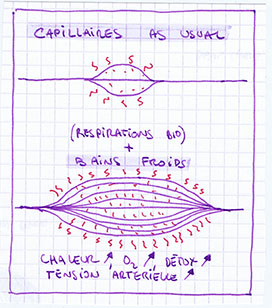 CAPILLAIRES AS USUAL
(RESPIRATIONS BIO)
+
BAINS FROIDS
CHALEUR ↗ O₂ ↗ DÉTOX ↗
TENSION ARTERIELLE ↗